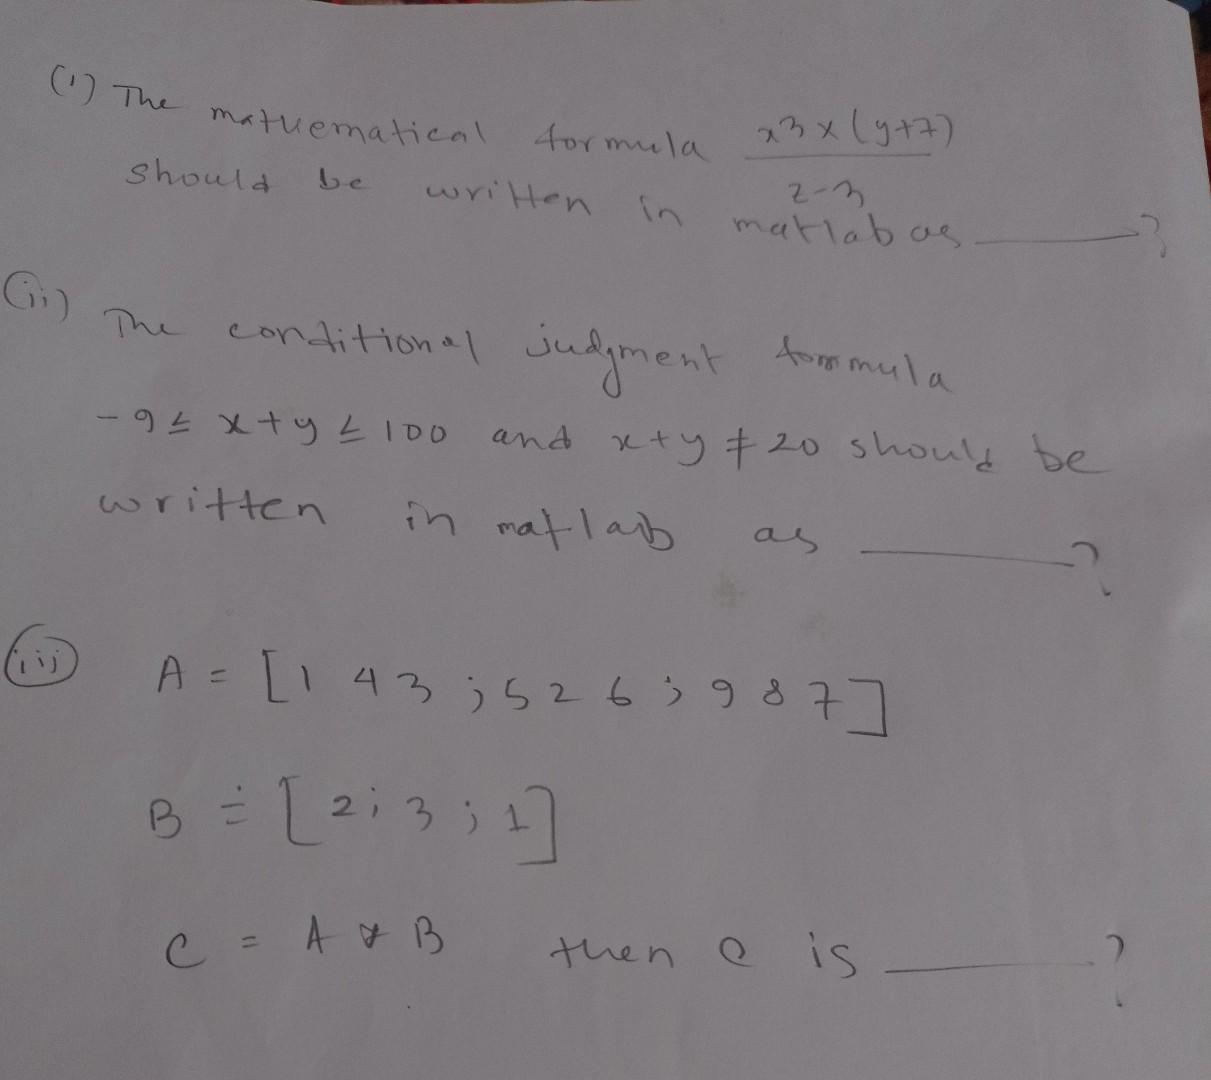 (1) The mathematical formula x3 x (y+7)
2-3
should be written in matlab as ?
(ii) The conditional judgment formula
-9 ≤ x+y ≤ 100 and x+y ≠ 20 should be
written in matlab as ?
(iii) A = [1 4 3 ; 5 2 6 ; 9 8 7]
B = [2; 3 ; 1]
C = A * B then C is ?